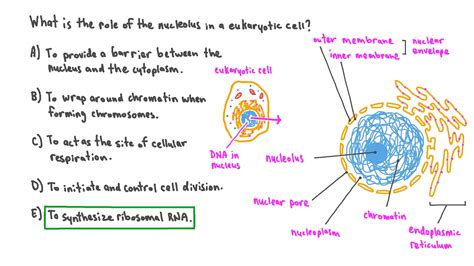 What is the role of the nucleolus in a eukaryotic cell?
A) To provide a barrier between the
nucleus and the cytoplasm.
B) To wrap around chromatin when
forming chromosomes.
C) To act as the site of cellular
respiration.
D) To initiate and control cell division.
E) To synthesize ribosomal RNA.
eukaryotic cell
DNA in
nucleus
outer membrane
inner membrane
nuclear
envelope
nucleolus
nuclear pore
nucleoplasm
chromatin
endoplasmic
reticulum